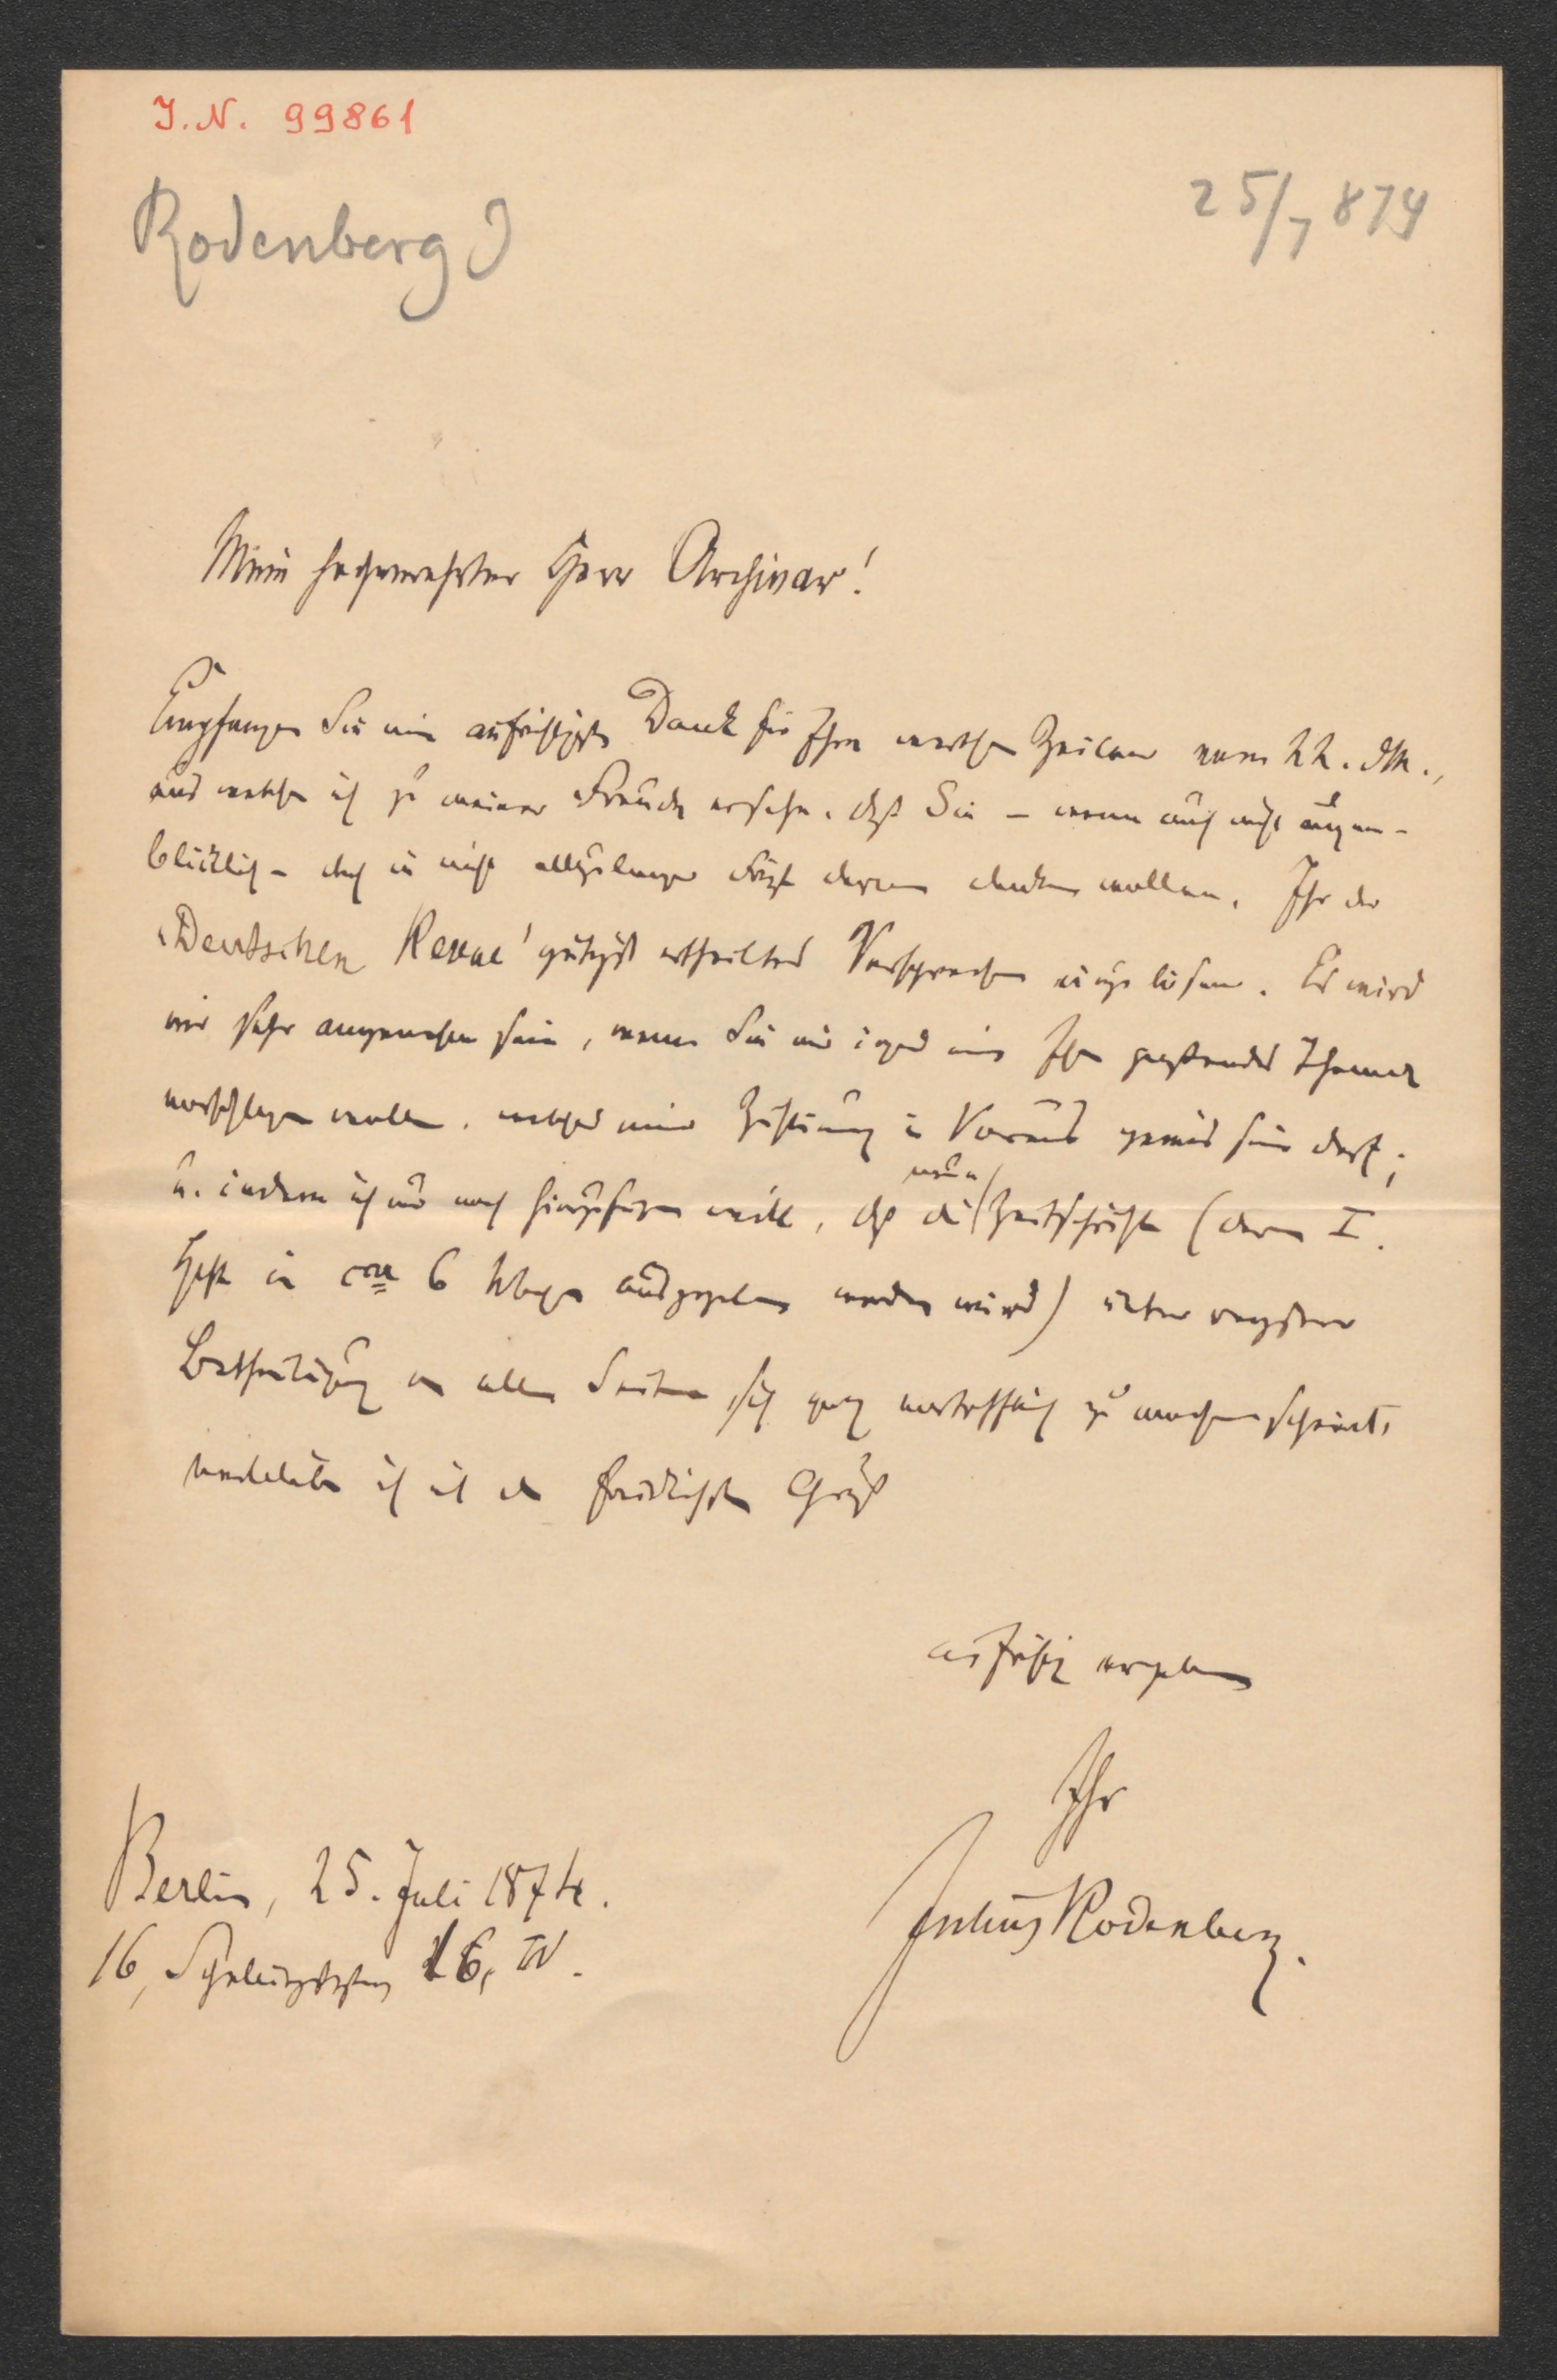 I.N. 99861
Rodenberg J
25/7 874
Mein hochverehrter Herr Archivar!
Empfangen Sie meinen aufrichtigsten Dank für Ihre werthen Zeilen vom 22. dM.,
aus welchen ich zu meiner Freude ersehe, daß Sie – wenn auch nicht augen-
blicklich – doch in nicht allzulanger Frist daran denken wollen, Ihr der
„Deutschen Revue' gütigst ertheiltes Versprechen einzulösen. Es wird
mir sehr angenehm sein, wenn Sie mir irgend ein Ihnen passendes Thema
vorschlagen wollen, welches meiner Zustimmung im Voraus gewiß sein darf;
u. indem ich nur noch hinzufügen will, daß die neue Zeitschrift (deren I.
Heft in ca 6 Wochen ausgegeben werden wird) unter regster
Betheiligung von allen Seiten sich ganz vortrefflich zu machen scheint,
verbleibe ich mit dem freundlichsten Gruß
aufrichtig ergeben
Ihr
Julius Rodenberg.
Berlin, 25. Juli 1874.
16, Schellingstraße 16, W.